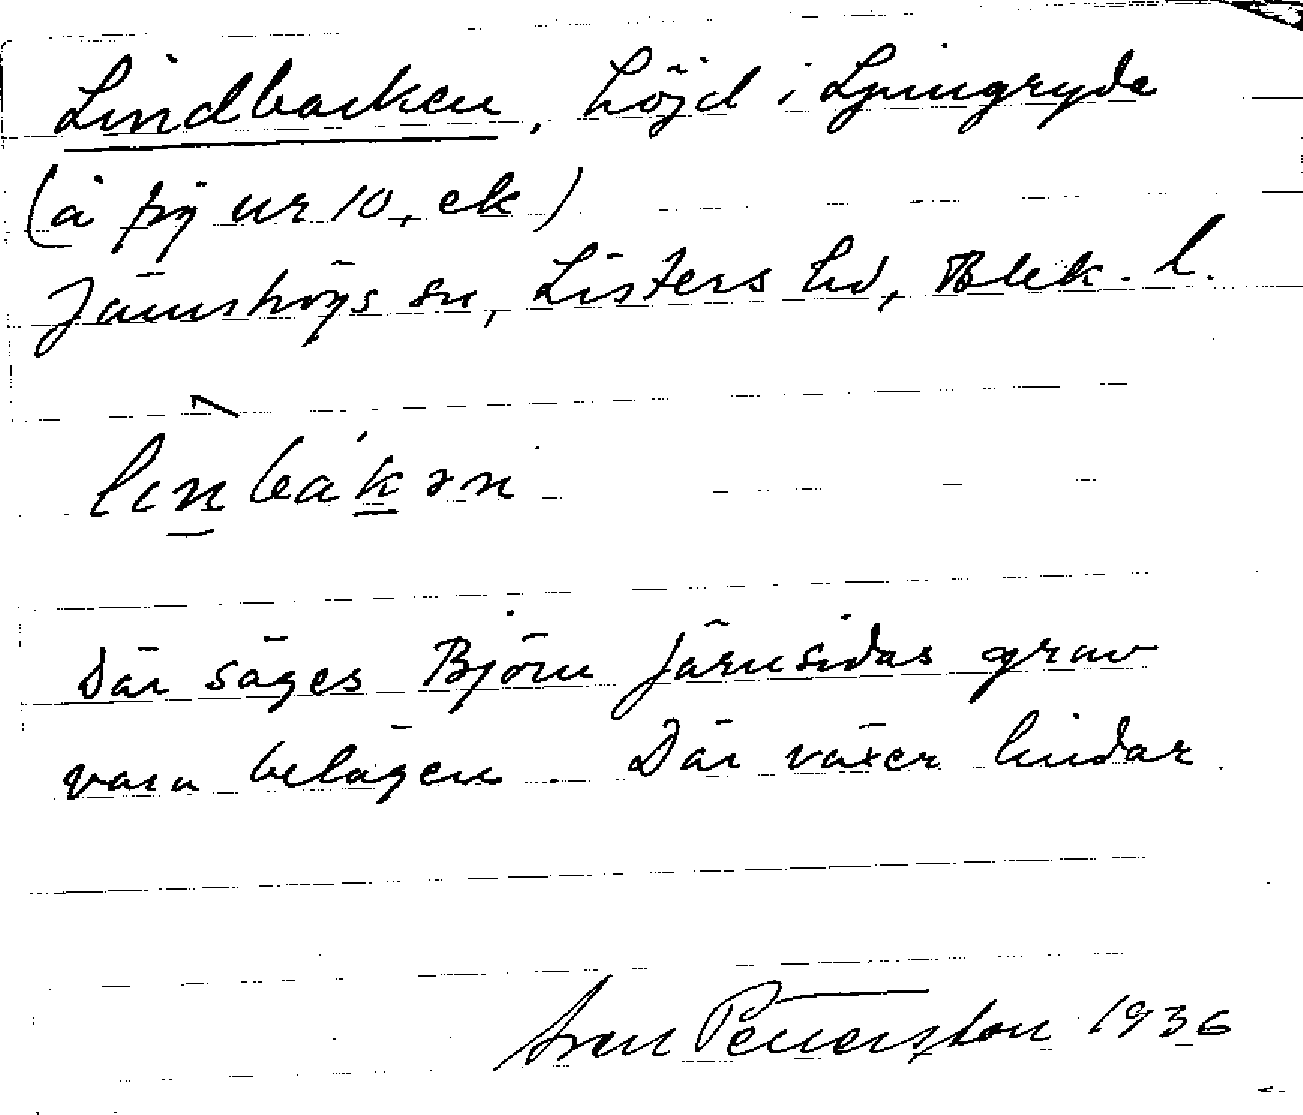 Lindbacken, höjd i Ljungryda
(å fig nr 10, ek)
Jämshögs sn, Listers hd, Blek. l.
linbakən
Där säges Björn Järnsidas grav
vara belägen. Där växer lindar.
Sven Pettersson 1936